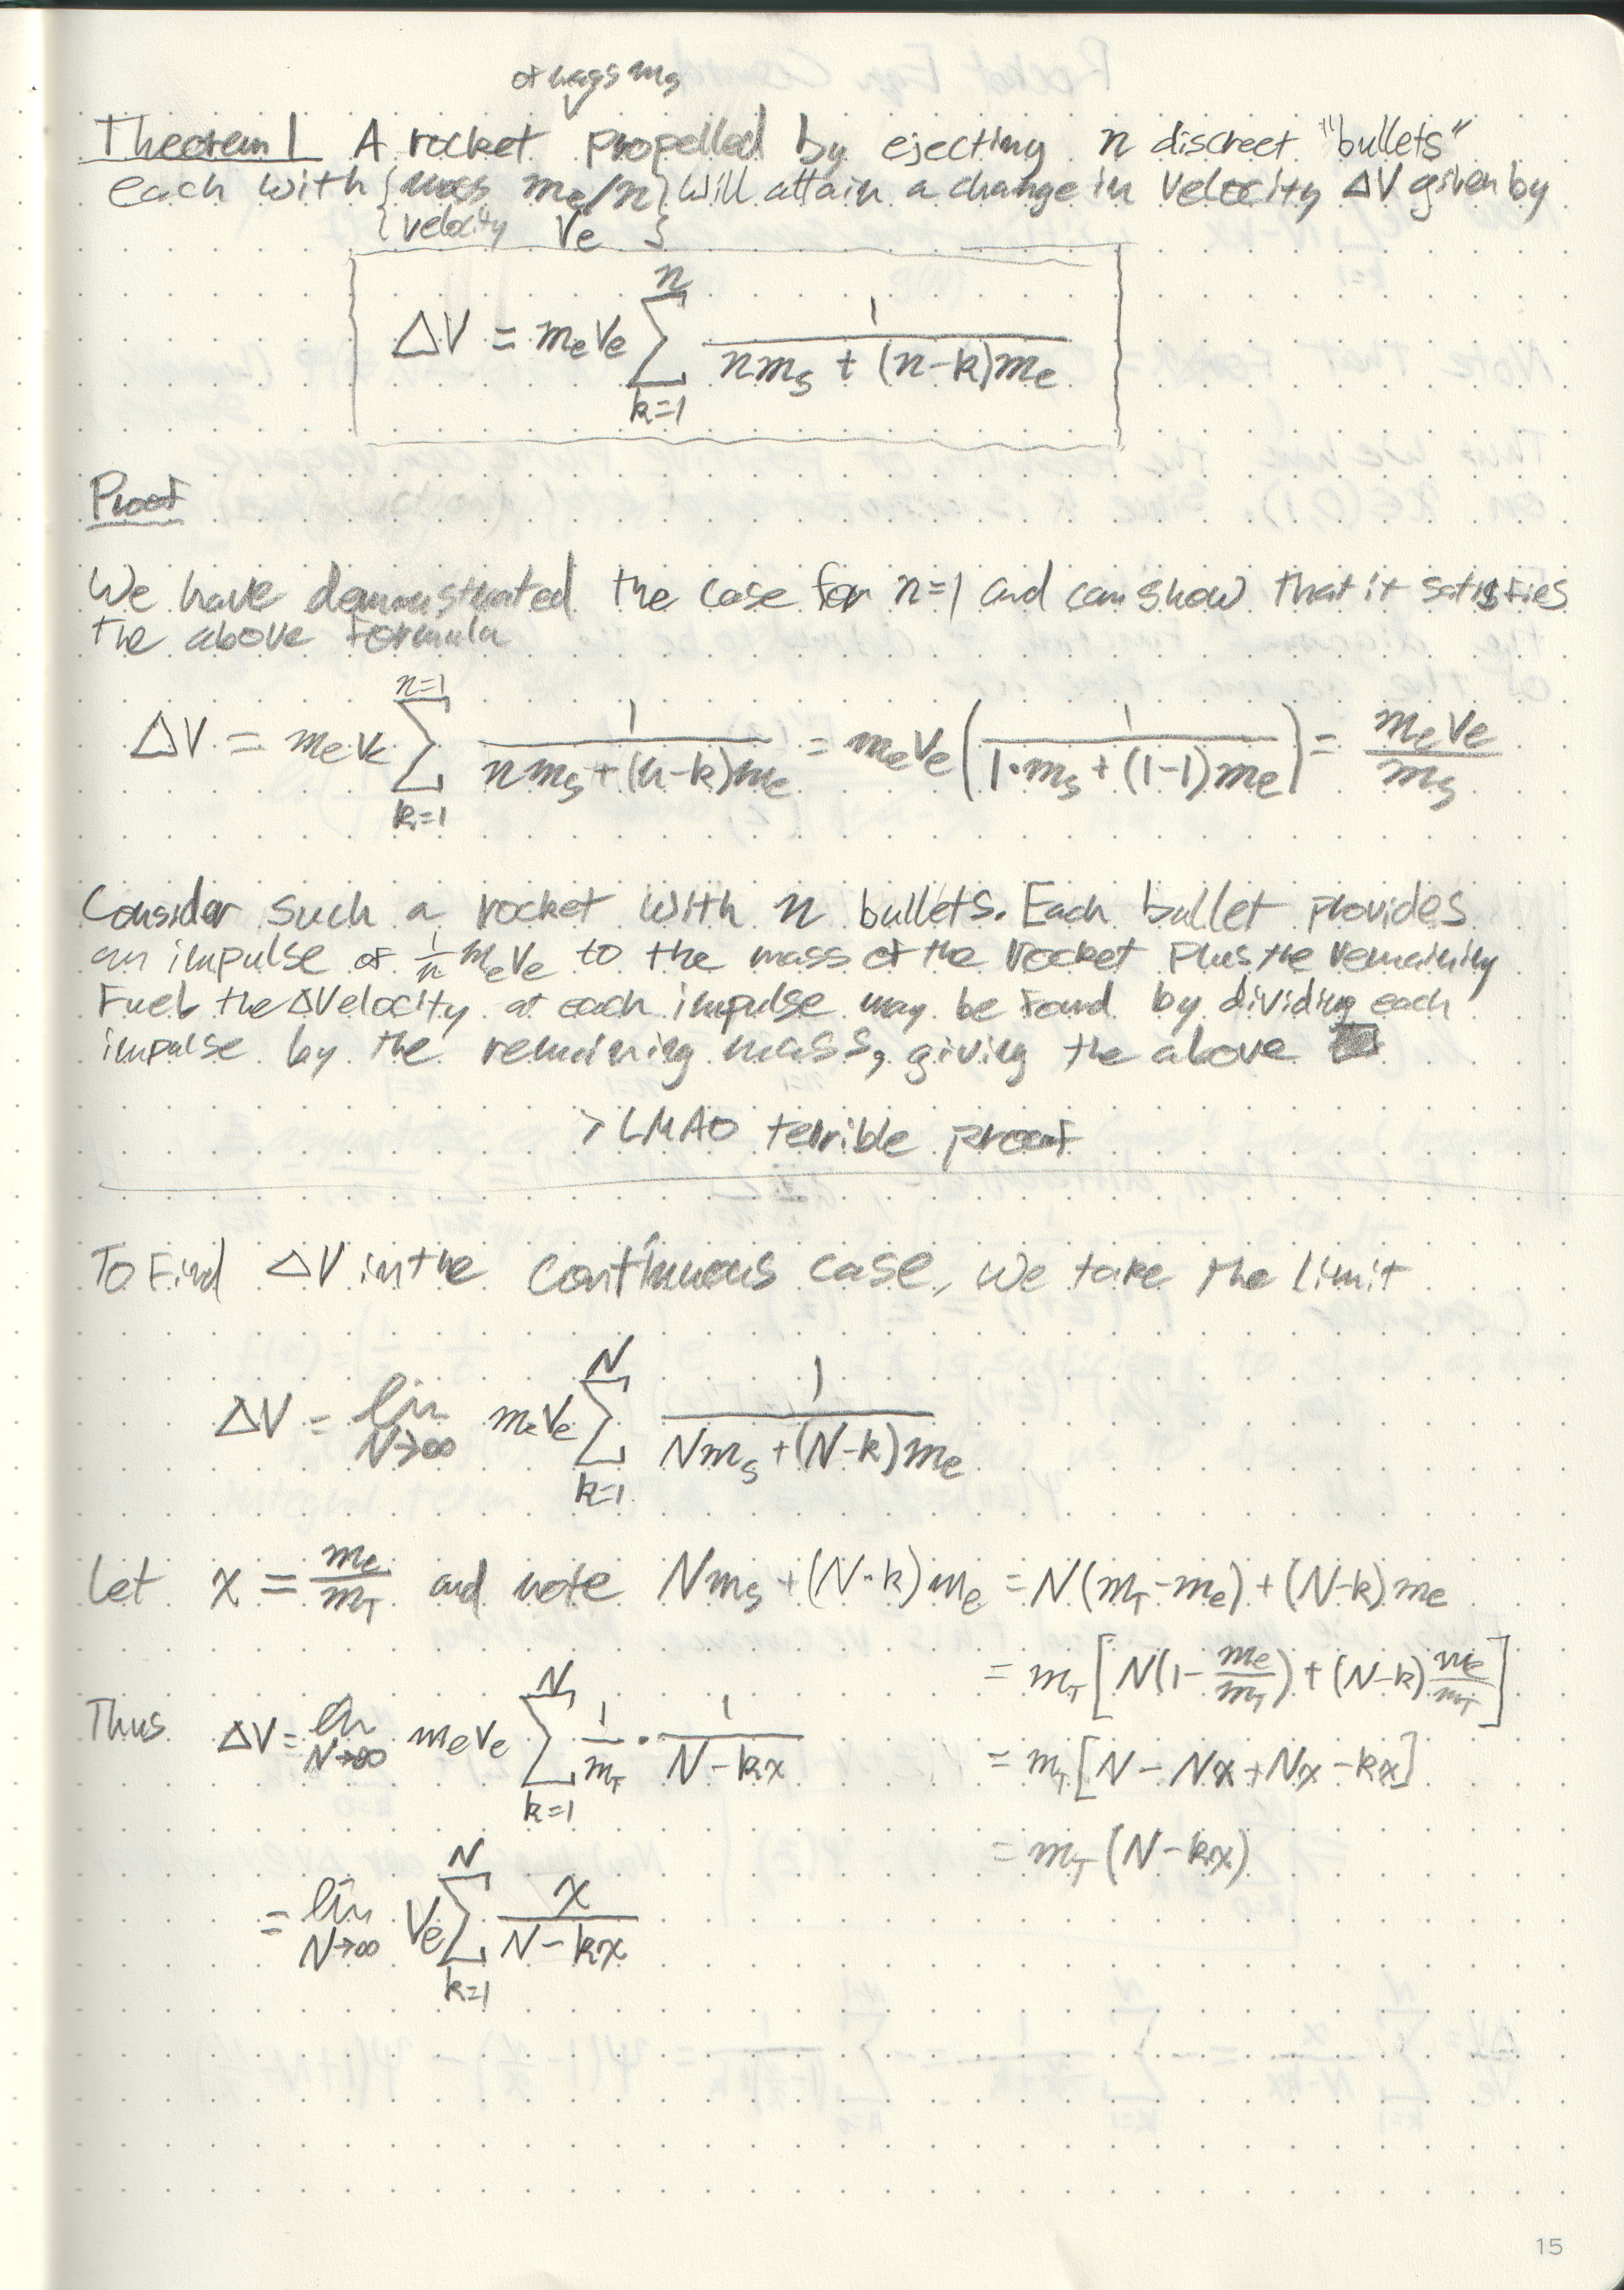 of mass m_s
Theorem 1 A rocket propelled by ejecting n discreet "bullets"
each with {mass m_e/n} will attain a change in velocity ΔV given by
{velocity V_e}
ΔV = m_e V_e \sum_{k=1}^{n} \frac{1}{n m_s + (n-k) m_e}
Proof
We have demonstrated the case for n=1 and can show that it satisfies
the above formula
ΔV = m_e V_e \sum_{k=1}^{n=1} \frac{1}{n m_s + (n-k) m_e} = m_e V_e \left( \frac{1}{1 \cdot m_s + (1-1) m_e} \right) = \frac{m_e V_e}{m_s}
Consider such a rocket with n bullets. Each bullet provides
an impulse of \frac{1}{n} m_e V_e to the mass of the rocket plus the remaining
fuel the ΔVelocity at each impulse may be found by dividing each
impulse by the remaining mass, giving the above ■
> LMAO terrible proof
To find ΔV in the continuous case, we take the limit
ΔV = \lim_{N→∞} m_e V_e \sum_{k=1}^{N} \frac{1}{N m_s + (N-k) m_e}
Let x = \frac{m_e}{m_T} and note N m_s + (N-k) m_e = N(m_T - m_e) + (N-k) m_e
= m_T [N(1 - \frac{m_e}{m_T}) + (N-k) \frac{m_e}{m_T}]
Thus ΔV = \lim_{N→∞} m_e V_e \sum_{k=1}^{N} \frac{1}{m_T} \cdot \frac{1}{N - kx}
= m_T [N - Nx + Nx - kx]
= m_T (N - kx)
= \lim_{N→∞} V_e \sum_{k=1}^{N} \frac{x}{N - kx}
15